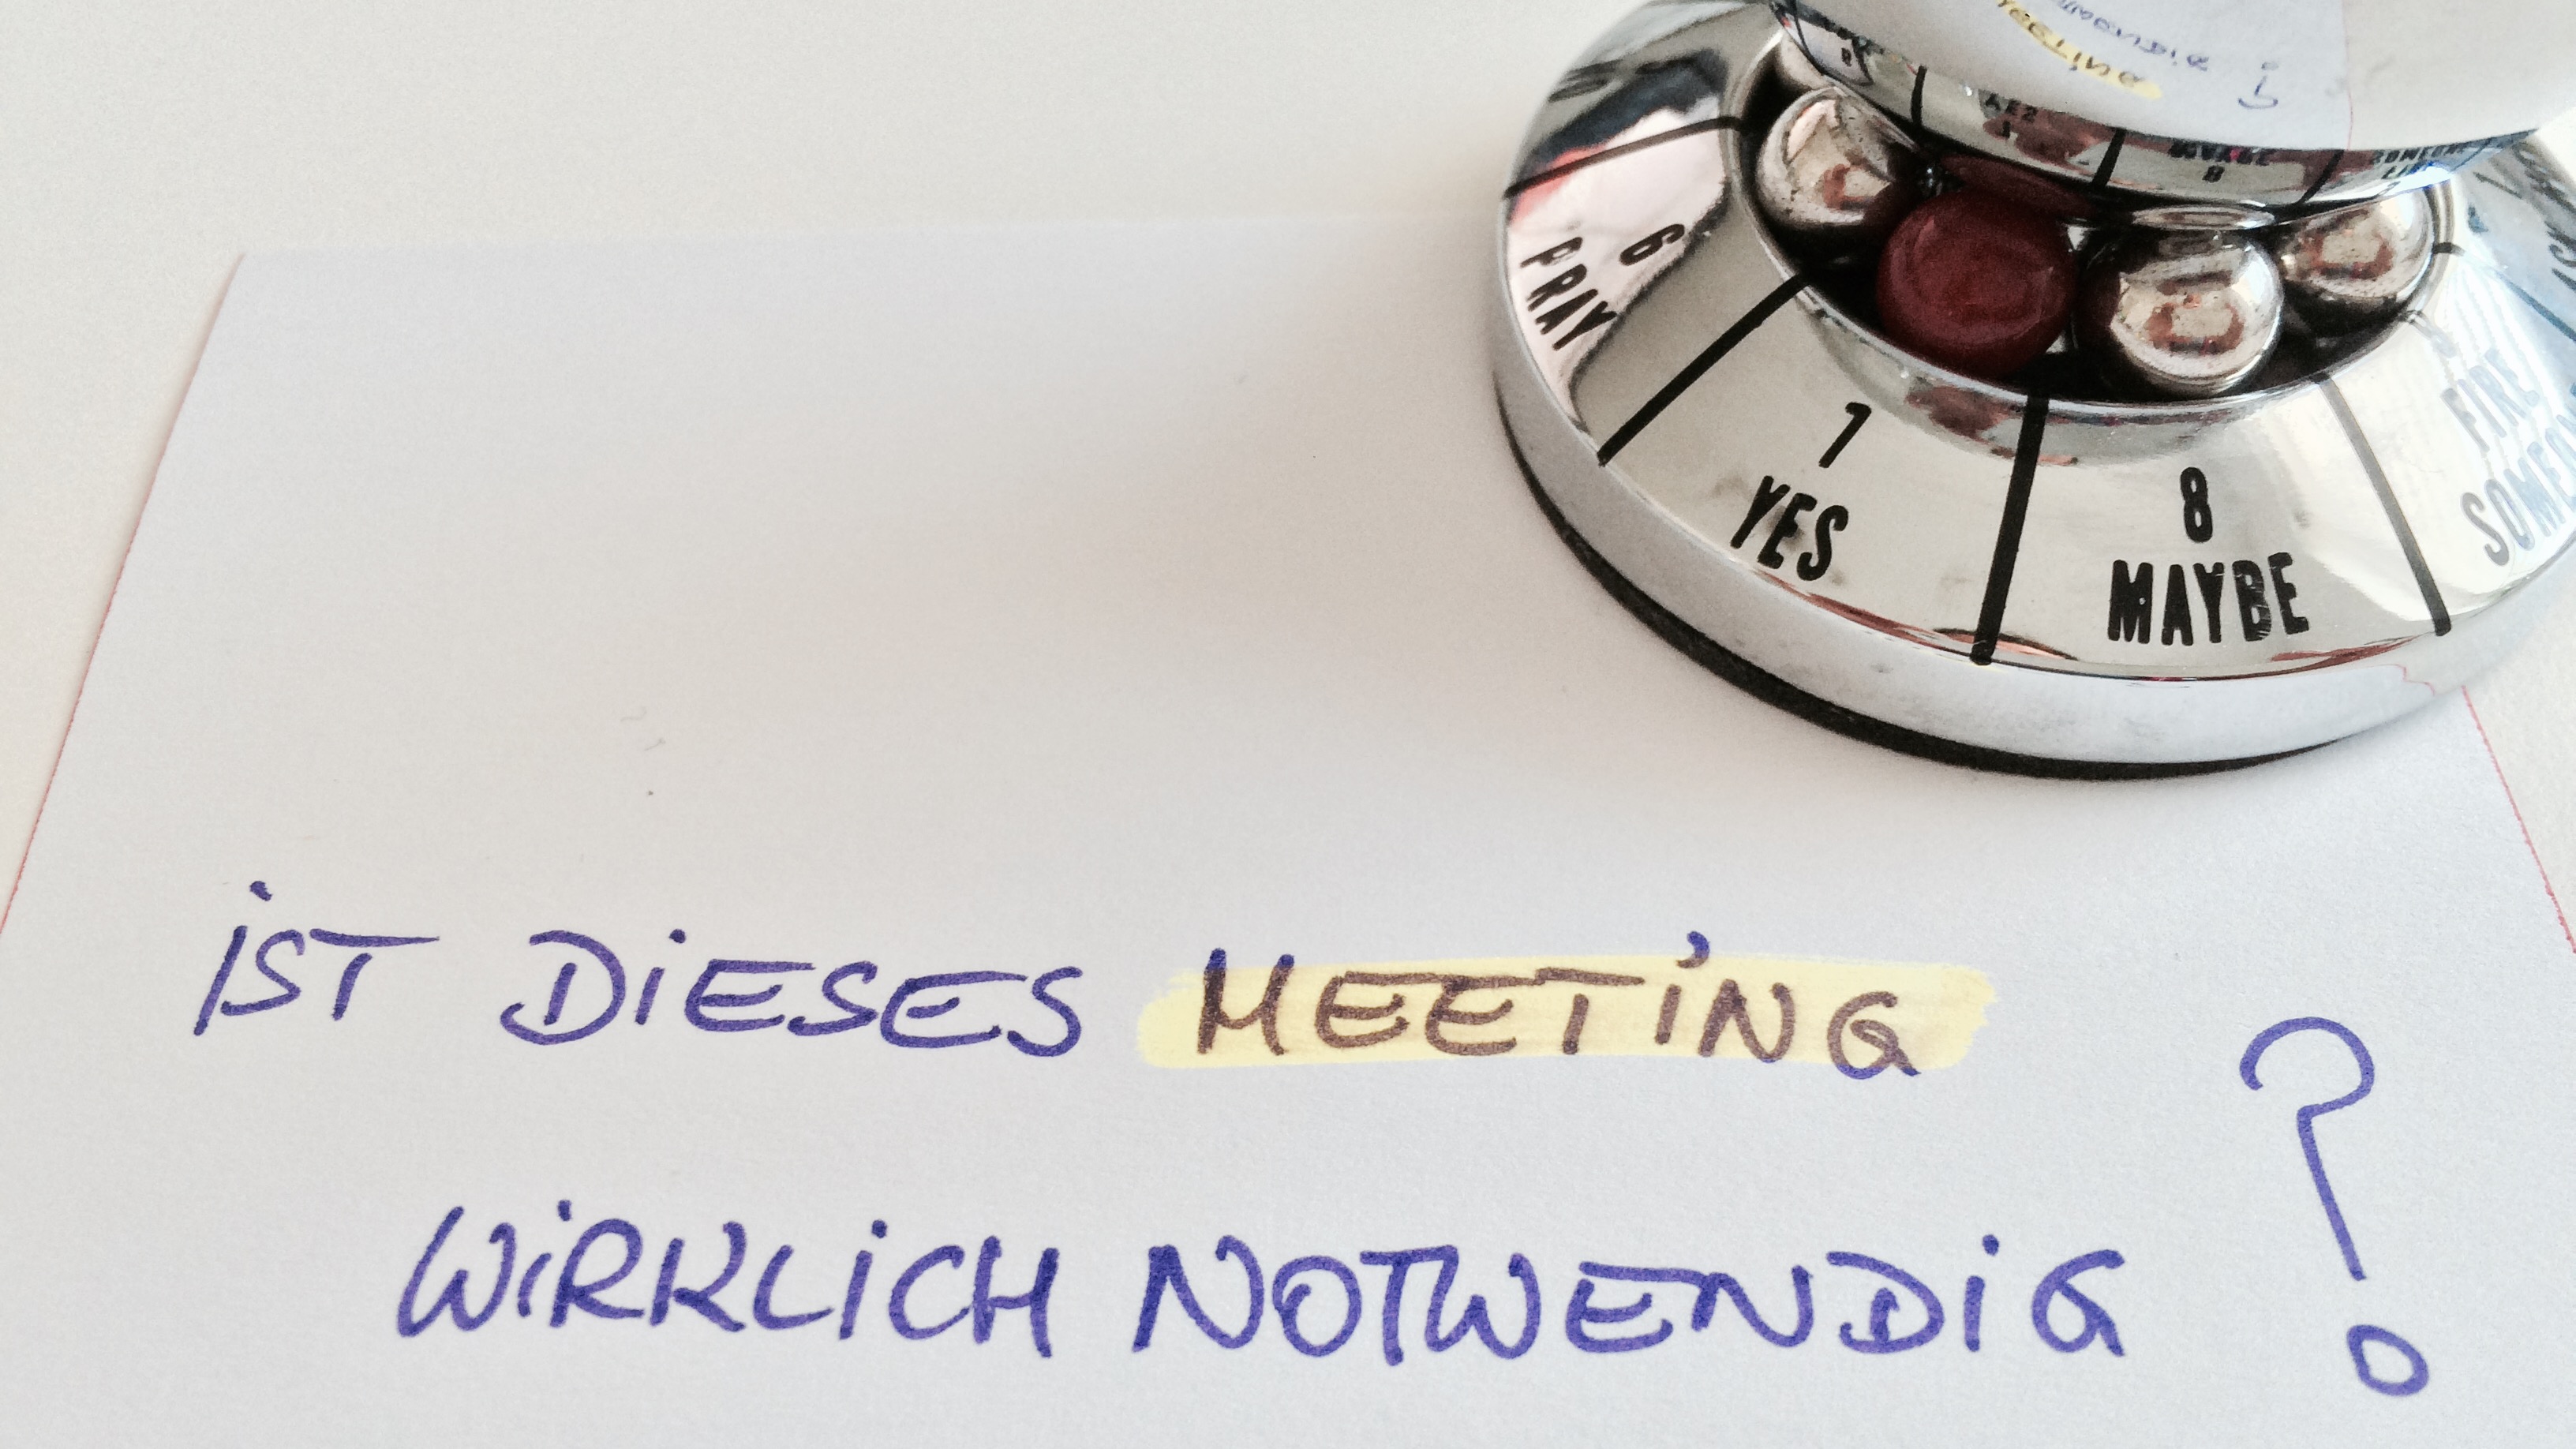 6
PRAY
7
YES
8
MAYBE
FIRE
iST DiESES MEETiNG
WiRKLiCH NOTWENDiG ?